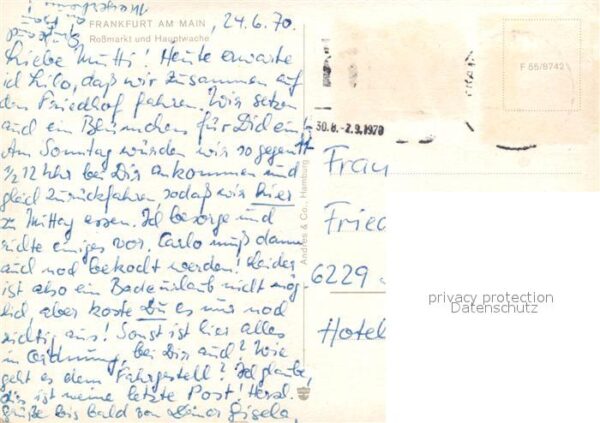 FRANKFURT AM MAIN
Roßmarkt und Hauptwache
, 24.6.70.
Liebe Mutti! Heute erwarte
ich Lilo, daß wir zusammen auf
den Friedhof fahren. Wir setzen
auch ein Blümchen für Dich ein!
Am Sonntag würden wir so gegen
1/2 12 Uhr bei Dir ankommen und
gleich zurückfahren, sodaß wir hier
zu Mittag essen. Ich besorge und
richte einiges vor. Carlo muß dann
auch noch bekocht werden! Leider
ist also ein Badeurlaub nicht mög
lich, aber koste Du es nur noch
richtig aus! Sonst ist hier alles
in Ordnung, bei Dir auch? Wie
geht es dem Fahrgestell? Ich glaube,
dies ist meine letzte Post! Herzl.
Grüße bis bald von Deiner Gisela.
Andres & Co., Hamburg
F 55/8742
30.8.-2.9.1970
Frau
Fried
6229
Hotel
privacy protection
Datenschutz